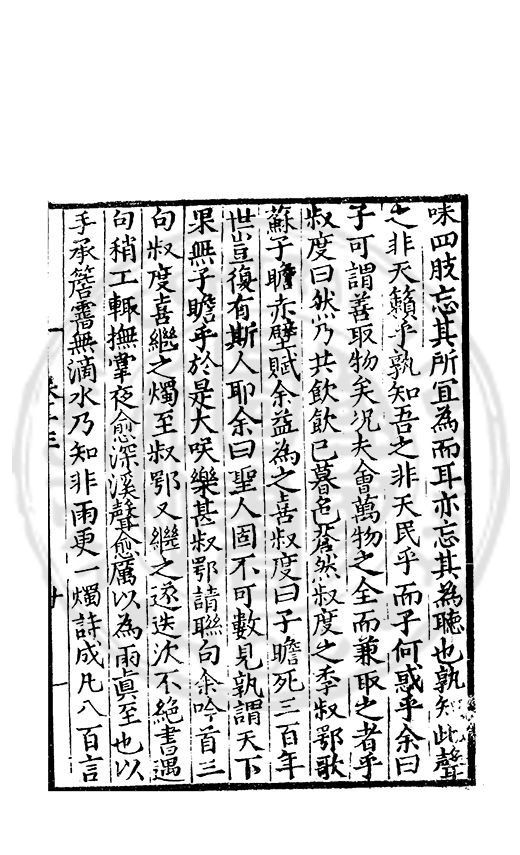 味四肢忘其所宜為而耳亦忘其為聽也孰知此聲
之非天籟乎孰知吾之非天民乎而子何惑乎余曰
子可謂善取物矣况夫會萬物之全而兼取之者乎
叔度曰然乃共飲飲已暮色蒼然叔度之季叔鄂歌
蘇子瞻赤壁賦余益為之喜叔度曰子瞻死三百年
世豈復有斯人耶余曰聖人固不可數見孰謂天下
果無子瞻乎於是大咲樂甚叔鄂請聯句余吟首三
句叔度喜繼之燭至叔鄂又繼之遂迭次不絕書遇
句稍工輒撫掌夜愈深溪聲愈厲以為雨真至也以
手承簷霤無滴水乃知非雨更一燭詩成凡八百言
卷十三